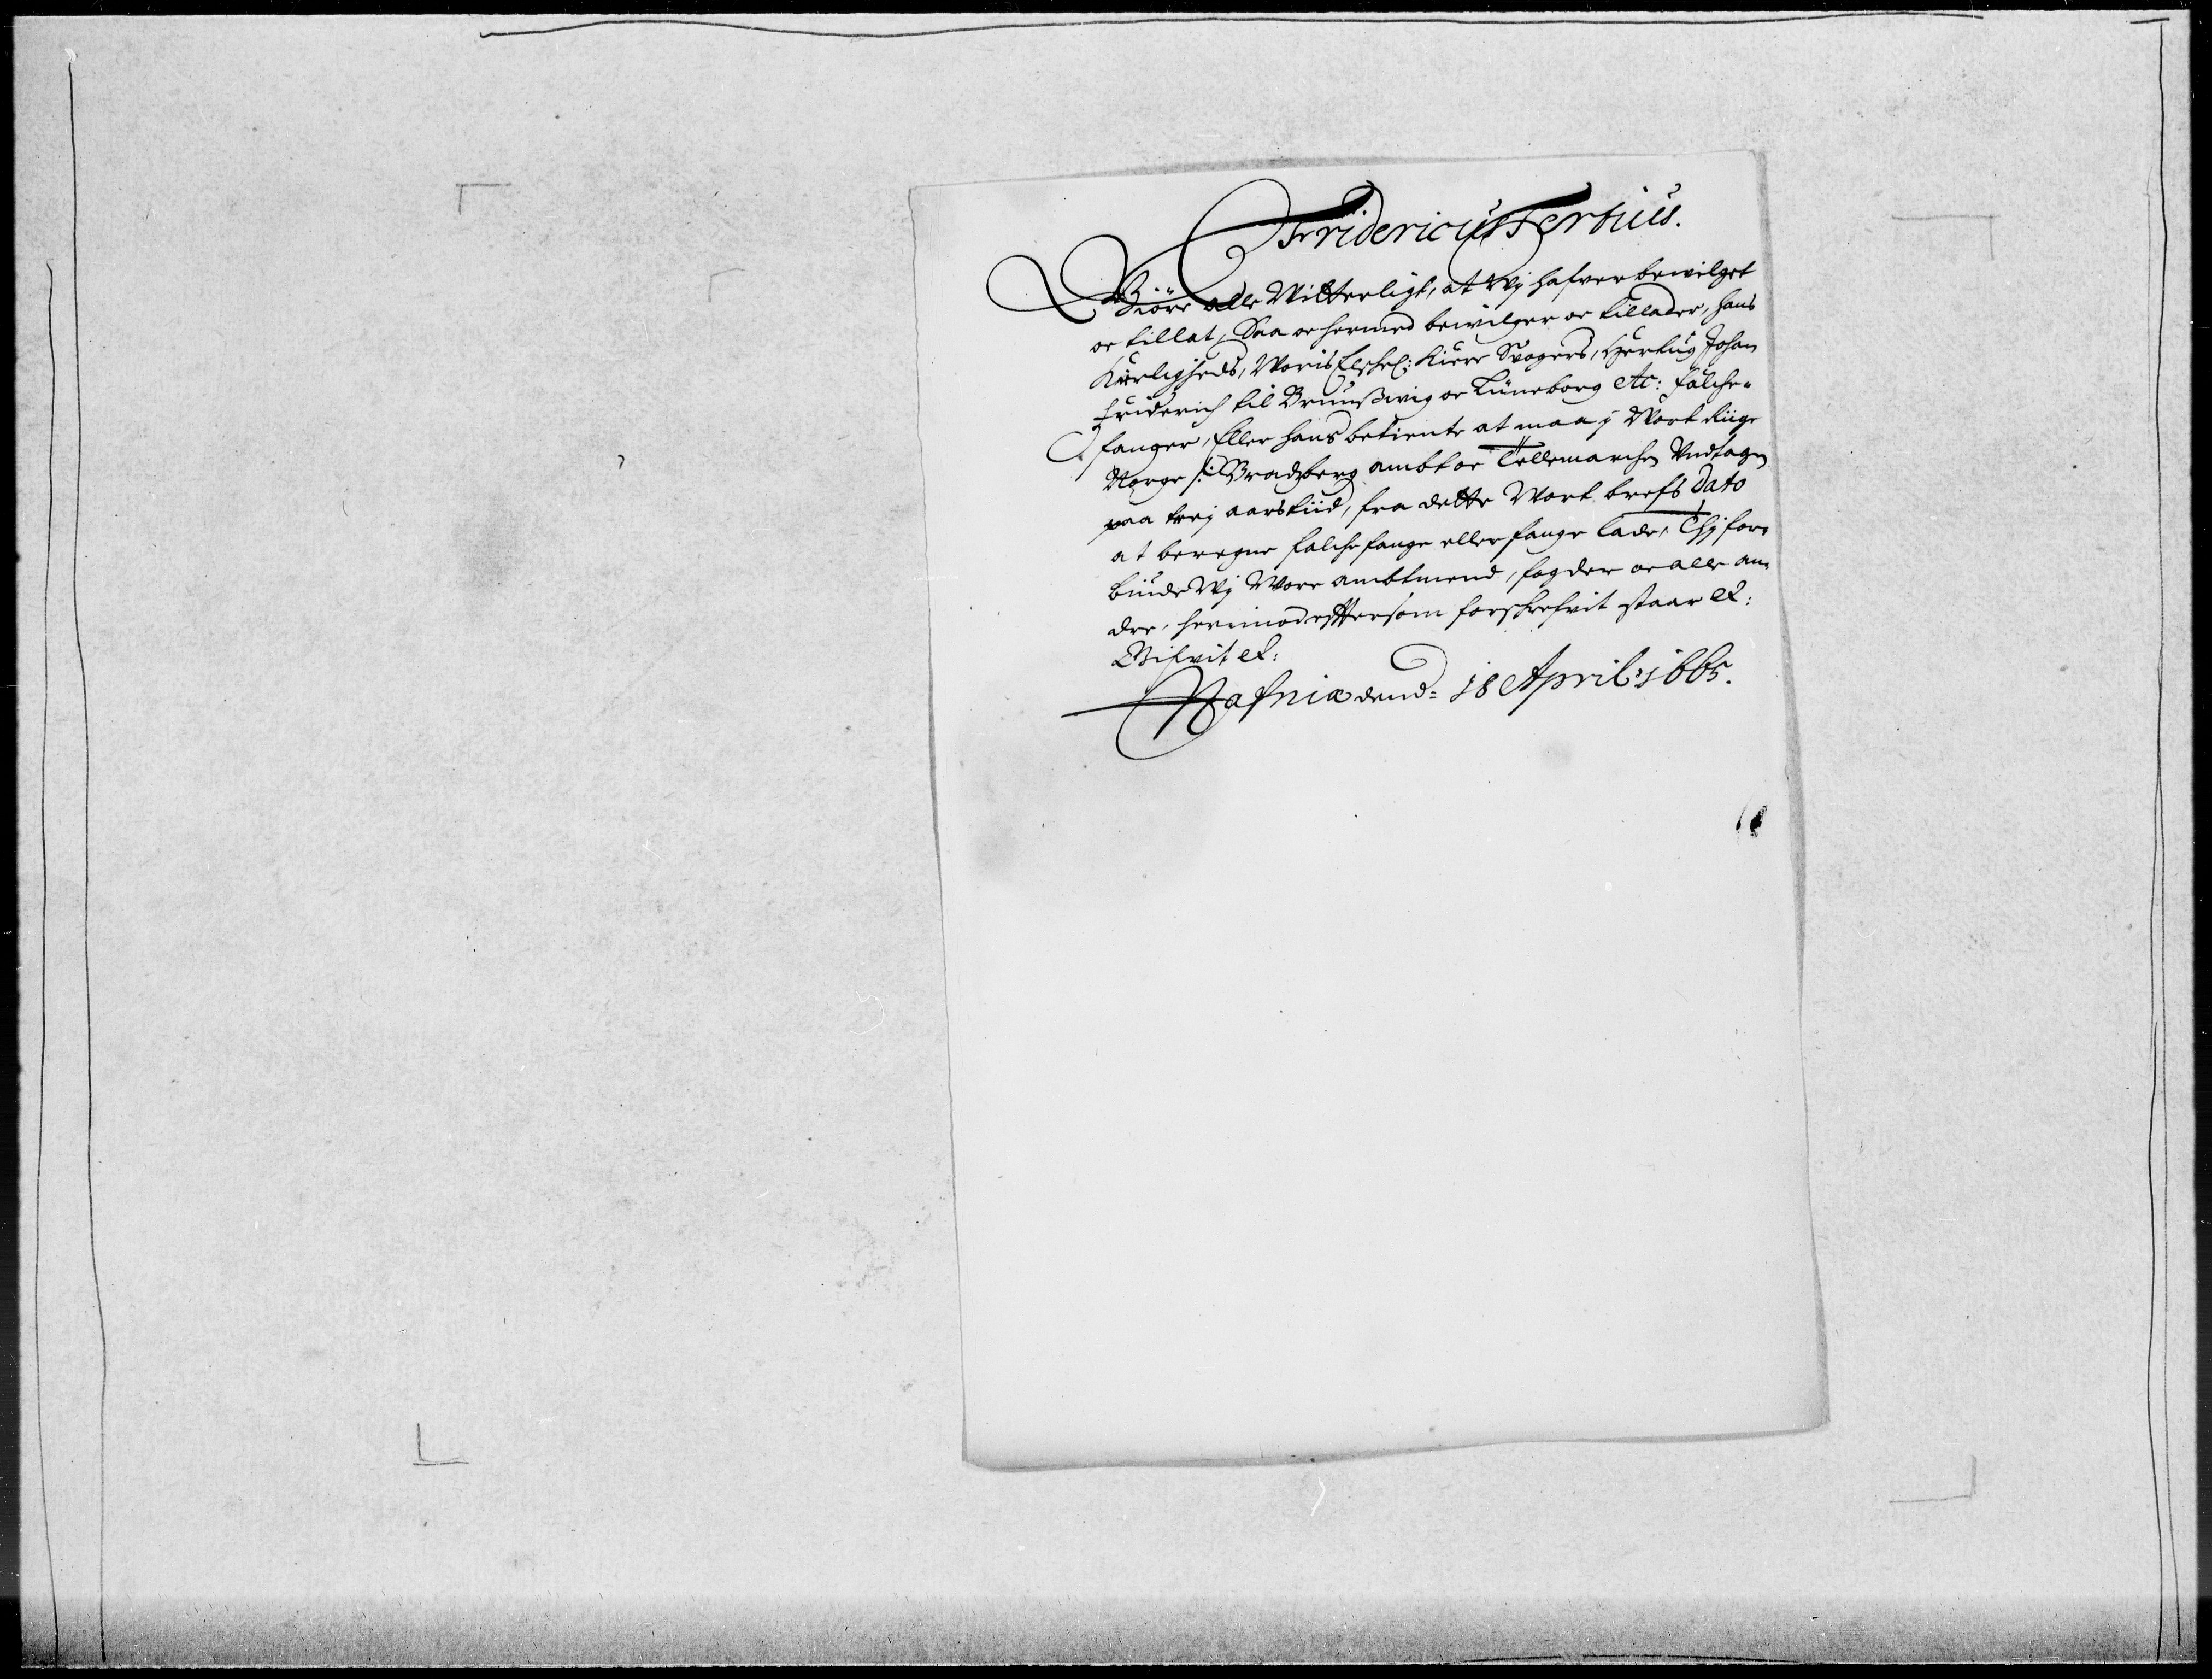 Fridericus Tertius.
Giöre alle Witterligt, at Wj hafver bewilget
oc tillat, Saa oc hermed bewilger oc tillader, hans
Kierligheds, Woris Elschel: Kiere Svogers, Hertug Johan
Friderich til Brunsswig oc Lüneborg etc: falche-
fanger, Eller hans betiente at maa j Wort Riige
Norge /: Bradsberg ambt oc Tellemarchen Undtagen
paa trej aarstiid, fra dette Wort brefs Dato
at beregne falche fange eller fange lade, Thj for-
biude Wj Wore ambtmend, fogder oc alle an-
dre, herimod eftersom forschrefvit staar et:
Gifvit et:
Hafniæ dend= 18 April: 1665.